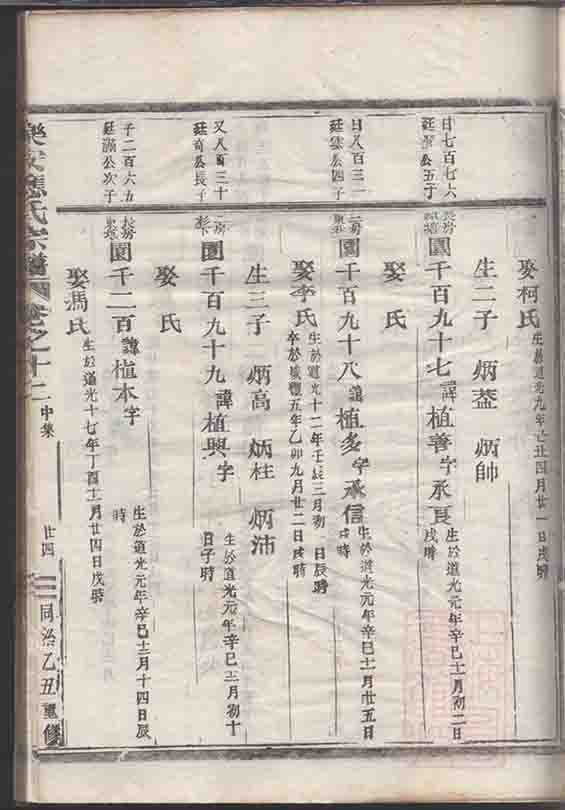 娶柯氏 生於道光九年己丑四月廿一日戌時
生二子 炳蓋 炳帥
日七百七六
廷公五子
長房
園千百九十七 諱植善字承良 生於道光元年辛巳十一月初二日戌時
娶 氏
日八百三一
廷雲公四子
二房
園千百九十八 諱植多字承信 生於道光元年辛巳十一月廿五日戌時
娶李氏 生於道光十二年壬辰三月初 日辰時
卒於咸豐五年乙卯九月廿二日戌時
又八百三十
廷奇公長子
二房
園千百九十九 諱植興字 生於道光元年辛巳十二月初十日子時
生三子 炳高 炳柱 炳沛
娶 氏
子二百六五
廷滿公次子
長房
園千二百 諱植本字 生於道光元年辛巳十二月十四日辰時
娶馮氏 生於道光十七年丁酉十一月廿四日戌時
樂安應氏宗譜 卷之十二 中集 廿四 同治乙丑重修